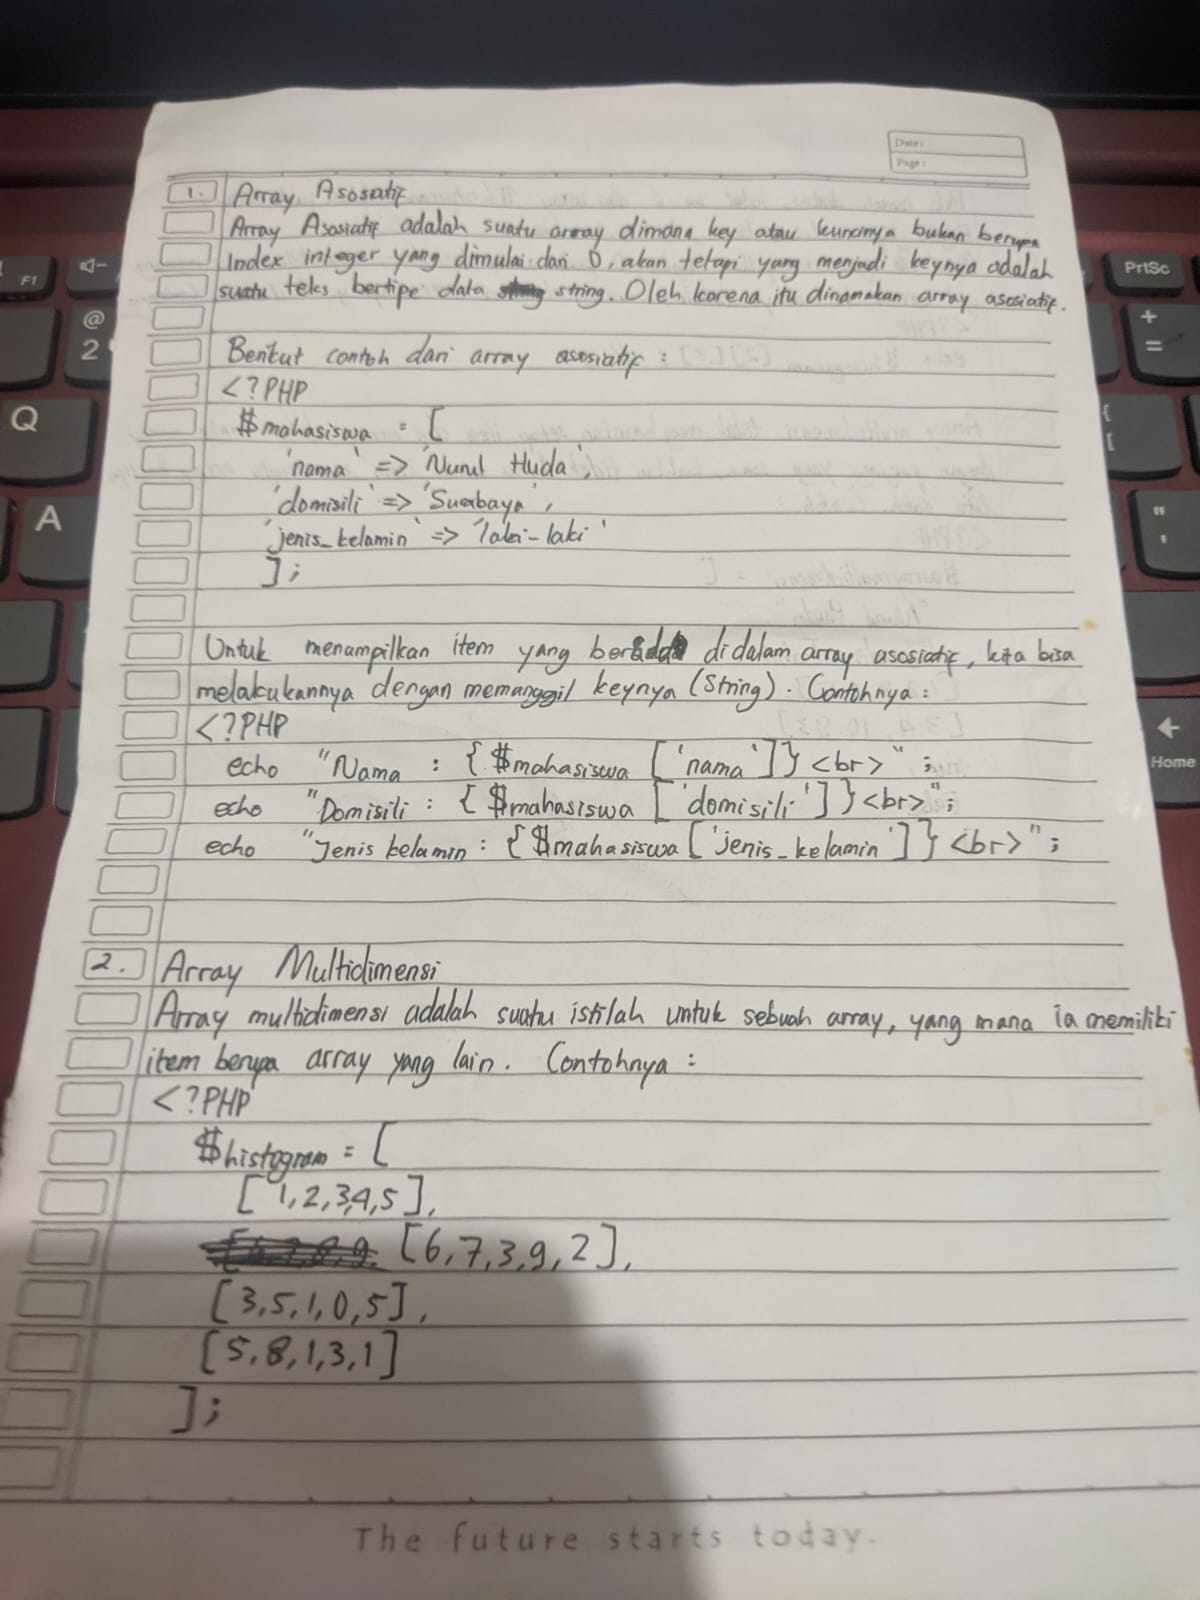 Date:
Page:
1. Array Asosiatif
Array Asosiatif adalah suatu array dimana key atau kuncinya bukan berupa
Index integer yang dimulai dari 0, akan tetapi yang menjadi keynya adalah
suatu teks bertipe data string. Oleh karena itu dinamakan array asosiatif.
Berikut contoh dari array asosiatif :
<?PHP
$mahasiswa = [
'nama' => 'Nurul Huda',
'domisili' => 'Surabaya',
'jenis_kelamin' => 'laki-laki'
];
Untuk menampilkan item yang berada didalam array asosiatif, kita bisa
melakukannya dengan memanggil keynya (String). Contohnya :
<?PHP
echo "Nama : {$mahasiswa ['nama']}<br>" ;
echo "Domisili : {$mahasiswa ['domisili']}<br>";
echo "Jenis kelamin : {$mahasiswa ['jenis_kelamin']}<br>";
2. Array Multidimensi
Array multidimensi adalah suatu istilah untuk sebuah array, yang mana ia memiliki
item berupa array yang lain. Contohnya :
<?PHP
$histogram = [
[1,2,3,4,5],
[6,7,3,9,2],
[3,5,1,0,5],
[5,8,1,3,1]
];
The future starts today.
F1
@
2
Q
A
PrtSc
+
=
{
[
"
'
←
Home